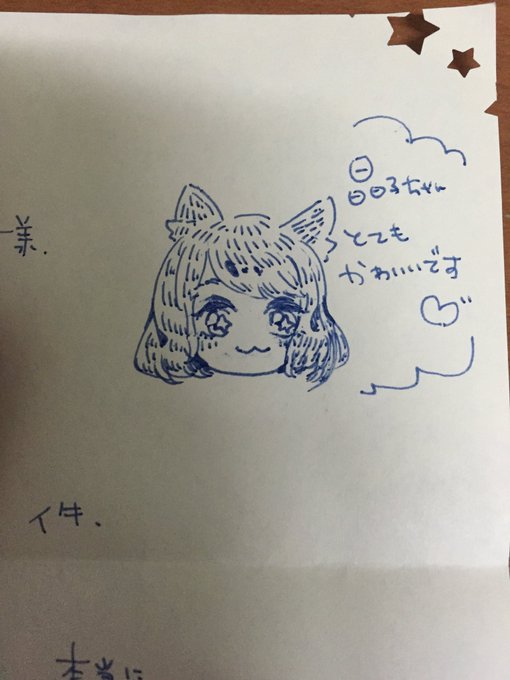 晶子ちゃん
様.
とても
かわいいです
♡
件、
本当に